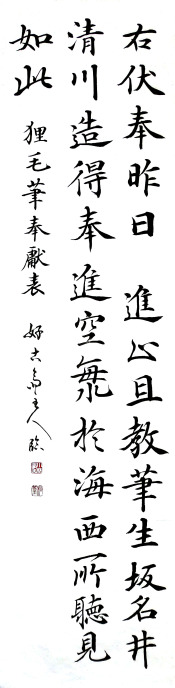 右伏奉昨日 進止且教筆生坂名井
清川造得奉進空海於海西所聽見
如此
狸毛筆奉獻表 好古主人臨